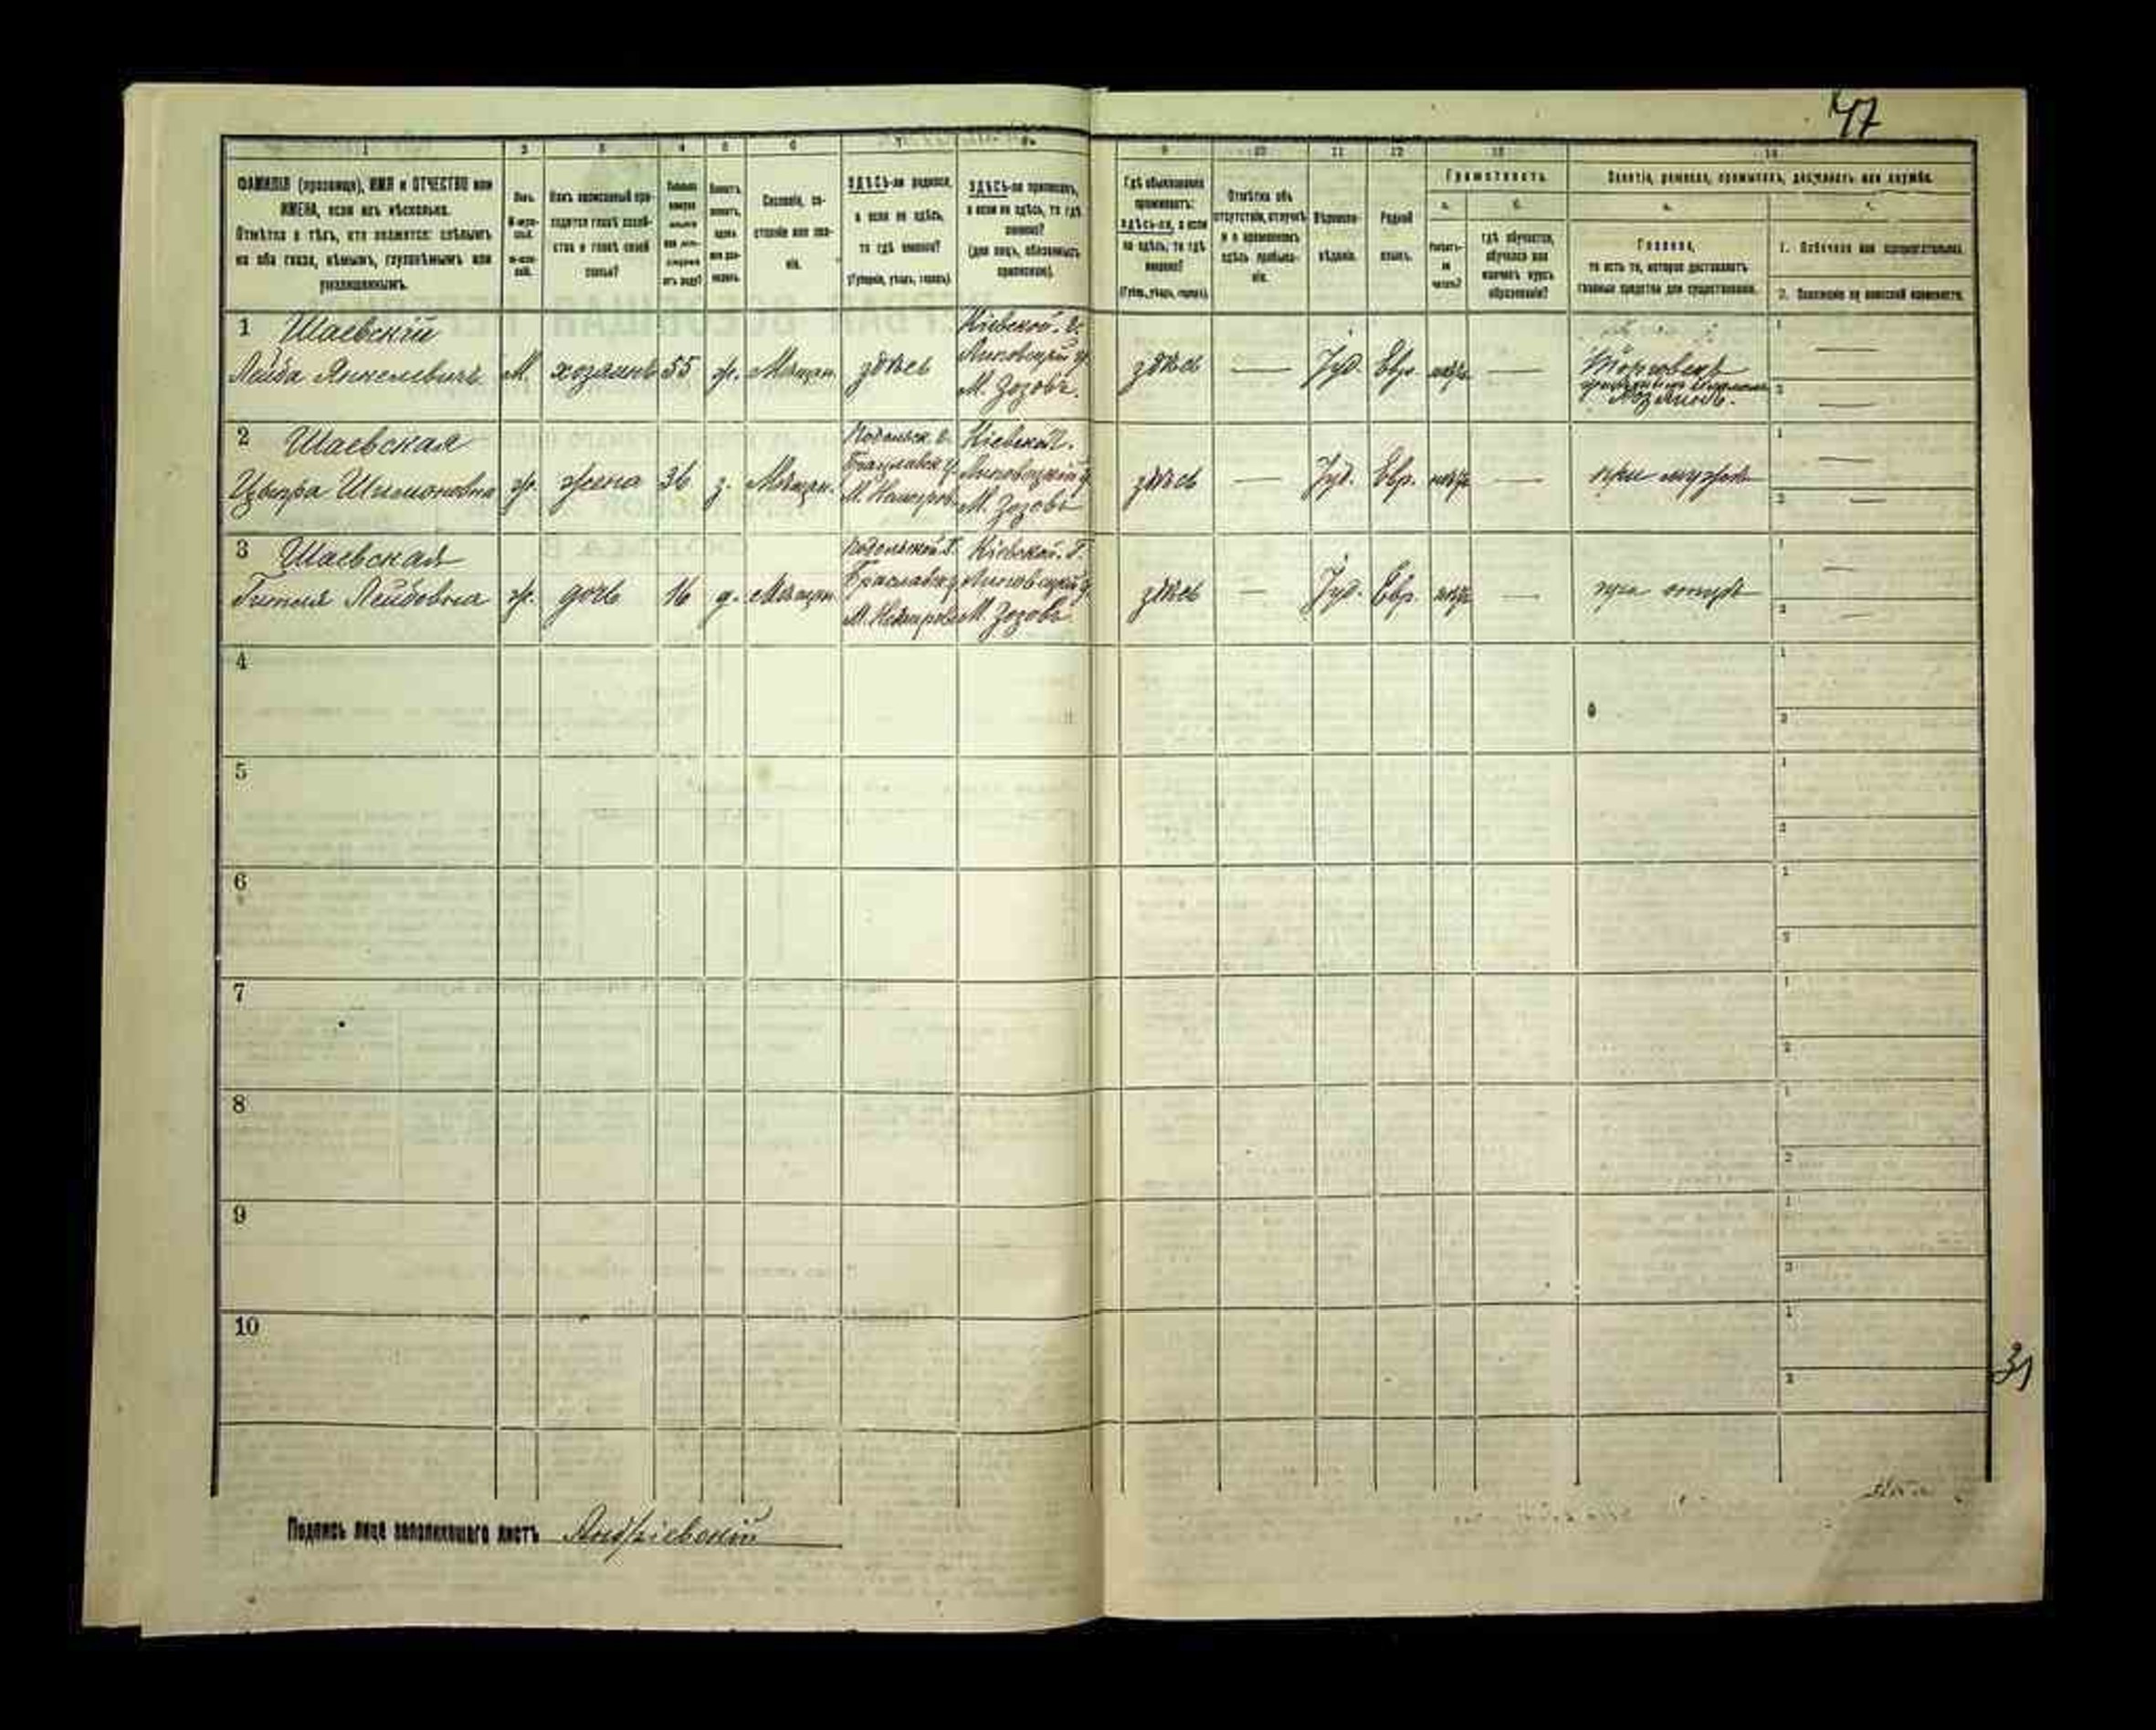 47
1 2 3 4 5 6 7 8 9 10 11 12 13 14
ФАМИЛІЯ (прозвище), ИМЯ и ОТЧЕСТВО или
ИМЕНА, если ихъ нѣсколько.
Отмѣтка о тѣхъ, кто окажется: слѣпымъ
на оба глаза, нѣмымъ, глухонѣмымъ или
умалишеннымъ.
Полъ.
М-муж-
ской.
Ж-жен-
скій.
Какъ записанный при-
ходится главѣ хозяй-
ства и главѣ своей
семьи?
Сословіе, со-
стояніе или зва-
ніе.
ЗДѢСЬ-ли родился,
а если не здѣсь,
то гдѣ именно?
(Губернія, уѣздъ, городъ).
ЗДѢСЬ-ли приписанъ,
а если не здѣсь, то гдѣ
именно?
(для лицъ, обязанныхъ
припискою).
Гдѣ обыкновенно
проживаетъ:
здѣсь-ли, а если
не здѣсь, то гдѣ
именно?
(Губ., уѣздъ, городъ).
Отмѣтка объ
отсутствіи, отлучкѣ
и о временномъ
здѣсь пребыва-
ніи.
Вѣроиспо-
вѣданіе.
Родной
языкъ.
Грамотность.
а.
Умѣетъ-
ли
читать?
б.
гдѣ обучается,
обучался или
кончилъ курсъ
образованія?
Занятіе, ремесло, промыселъ, должность или служба.
Главное,
то есть то, которое доставляетъ
главныя средства для существованія.
1. Побочное или вспомогательное.
2. Положеніе по воинской повинности.
1 Шаевскій
Лейба Янкелевичъ
М.
хозяинъ
55
ж.
Мѣщан.
здѣсь
Кіевской. г.
Липовецкій у.
М. Зозовъ.
здѣсь
—
Іуд.
Евр.
—
Торговецъ
2 Шаевская
Цыпра Шимоновна
ж.
жена
36
з.
Мѣщан.
Подольск. г.
Брацлавск у.
Кіевской.
Липовецкій у.
М. Зозовъ
здѣсь
—
Іуд.
Евр.
—
при мужѣ
3 Шаевская
Гитля Лейбовна
ж.
дочь
16
д.
Мѣщан.
Подольской Г.
Брацлавск у.
Кіевской. Г.
Липовецкій у.
М. Зозовъ.
здѣсь
—
Іуд.
Евр.
—
при отцѣ
4
5
6
7
8
9
10
31
Подпись лица заполнившаго листъ Андріевскій